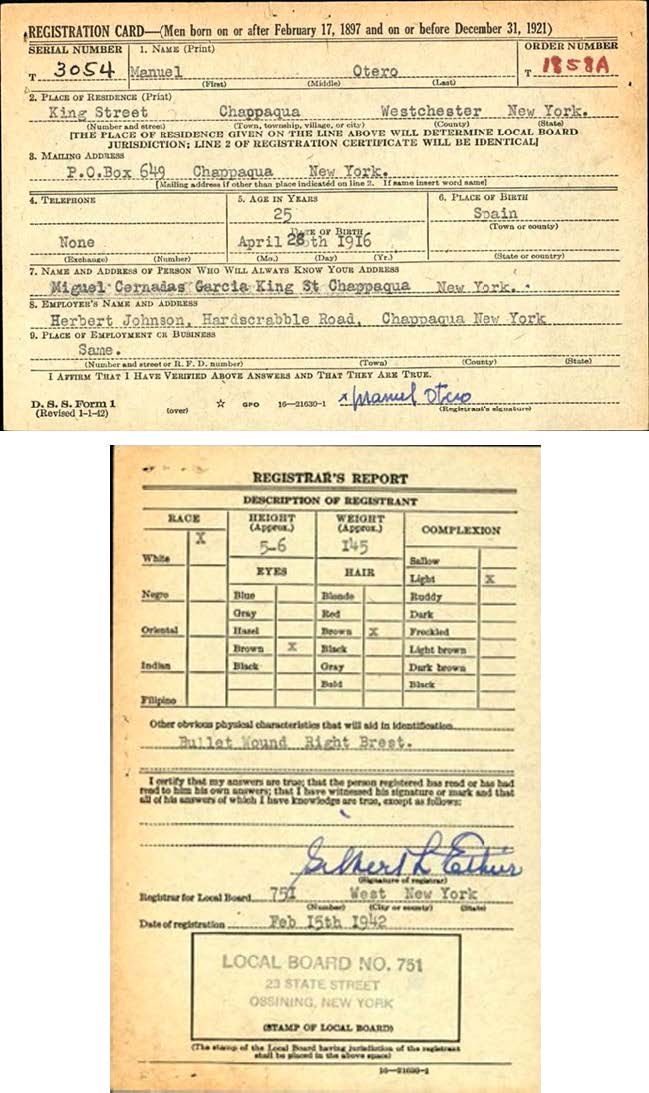 REGISTRATION CARD—(Men born on or after February 17, 1897 and on or before December 31, 1921)
SERIAL NUMBER 1. NAME (Print) ORDER NUMBER
T 3054 Manuel Otero T 1858A
(First) (Middle) (Last)
2. PLACE OF RESIDENCE (Print)
King Street Chappaqua Westchester New York.
(Number and street) (Town, township, village, or city) (County) (State)
[THE PLACE OF RESIDENCE GIVEN ON THE LINE ABOVE WILL DETERMINE LOCAL BOARD
JURISDICTION; LINE 2 OF REGISTRATION CERTIFICATE WILL BE IDENTICAL]
3. MAILING ADDRESS
P.O.Box 649 Chappaqua New York.
[Mailing address if other than place indicated on line 2. If same insert word same]
4. TELEPHONE 5. AGE IN YEARS 6. PLACE OF BIRTH
25 Spain
DATE OF BIRTH (Town or county)
None April 28th 1916
(Exchange) (Number) (Mo.) (Day) (Yr.) (State or country)
7. NAME AND ADDRESS OF PERSON WHO WILL ALWAYS KNOW YOUR ADDRESS
Miguel Cernadas Garcia King St Chappaqua New York.
8. EMPLOYER'S NAME AND ADDRESS
Herbert Johnson, Hardscrabble Road, Chappaqua New York
9. PLACE OF EMPLOYMENT OR BUSINESS
Same.
(Number and street or R. F. D. number) (Town) (County) (State)
I AFFIRM THAT I HAVE VERIFIED ABOVE ANSWERS AND THAT THEY ARE TRUE.
D. S. S. Form 1 x Manuel Otero
(Revised 1-1-42) (over) ☆ GPO 16—21630-1 (Registrant's signature)
REGISTRAR'S REPORT
DESCRIPTION OF REGISTRANT
RACE HEIGHT (Approx.) WEIGHT (Approx.) COMPLEXION
X 5-6 145
White Sallow
EYES HAIR Light X
Negro Blue Blonde Ruddy
Gray Red Dark
Oriental Hazel Brown X Freckled
Brown X Black Light brown
Indian Black Gray Dark brown
Bald Black
Filipino
Other obvious physical characteristics that will aid in identification
Bullet Wound Right Brest.
I certify that my answers are true; that the person registered has read or has had
read to him his own answers; that I have witnessed his signature or mark and that
all of his answers of which I have knowledge are true, except as follows:
(Signature of registrar)
Registrar for Local Board 751 West New York
(Number) (City or county) (State)
Date of registration Feb 15th 1942
LOCAL BOARD NO. 751
23 STATE STREET
OSSINING, NEW YORK
(STAMP OF LOCAL BOARD)
(The stamp of the Local Board having jurisdiction of the registrant
shall be placed in the above space)
16—21630-1